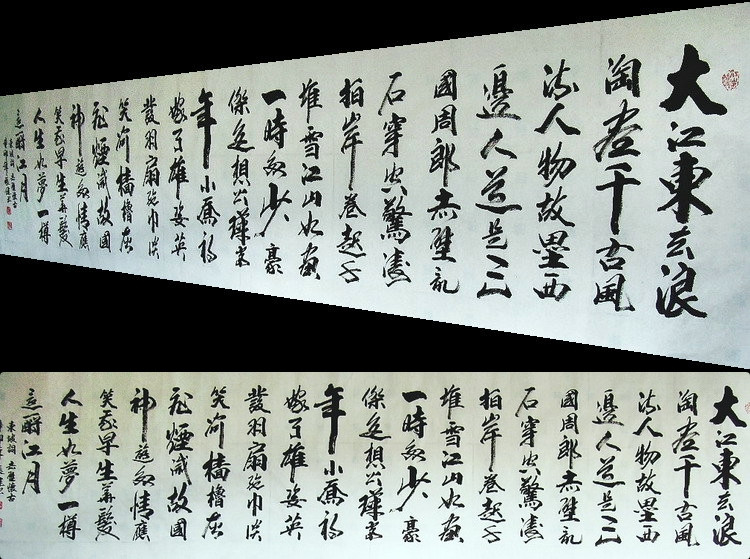 大江東去浪
淘盡千古風
流人物故壘西
邊人道是三
國周郎赤壁亂
石穿空驚濤
拍岸卷起千
堆雪江山如畫
一時多少豪
傑遙想公瑾當
年小喬初
嫁了雄姿英
發羽扇綸巾談
笑間檣櫓灰
飛煙滅故國
神遊多情應
笑我早生華髮
人生如夢一樽
還酹江月
東坡詞赤壁懷古
大江東去浪
淘盡千古風
流人物故壘西
邊人道是三
國周郎赤壁亂
石穿空驚濤
拍岸卷起千
堆雪江山如畫
一時多少豪
傑遙想公瑾當
年小喬初
嫁了雄姿英
發羽扇綸巾談
笑間檣櫓灰
飛煙滅故國
神遊多情應
笑我早生華髮
人生如夢一樽
還酹江月
東坡詞赤壁懷古